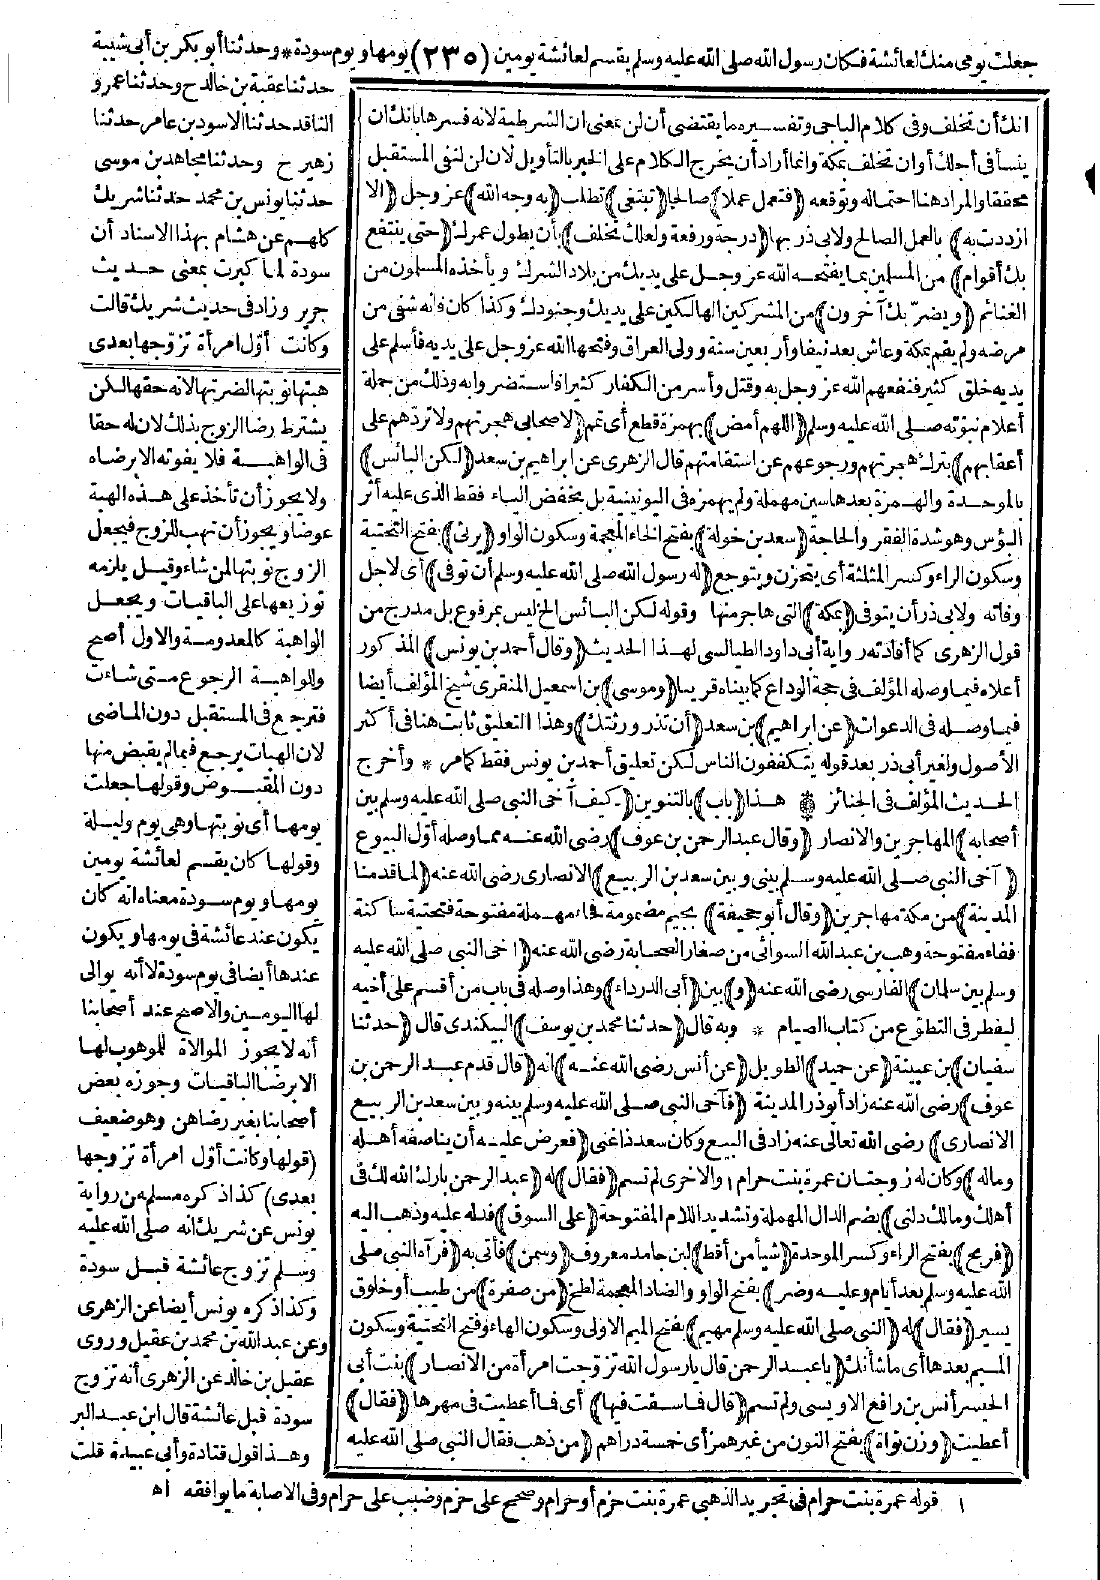 جعلت يومى منك لعائشة فكان رسول الله صلى الله عليه وسلم يقسم لعائشة يومين (٢٣٥) يومها ويوم سودة * وحدثنا أبو بكر بن أبى شيبة
حدثنا عقبة بن خالد ح وحدثنا عمرو
الناقد حدثنا الاسود بن عامر حدثنا
زهير ح وحدثنا مجاهد بن موسى
حدثنا يونس بن محمد حدثنا شريك
كلهم عن هشام بهذا الاسناد أن
سودة لما كبرت بمعنى حديث
جرير وزاد فى حديث شريك قالت
وكانت أوّل امرأة تزوّجها بعدى
هبتها نوبتها لضرتها لانه حقها لكن
يشترط رضا الزوج بذلك لان له حقا
فى الواهبة فلا يفوته الا برضاه
ولا يجوز أن تأخذ على هذه الهبة
عوضا ويجوز أن تهب للزوج فيجعل
الزوج نوبتها لمن شاء وقيل يلزمه
توزيعها على الباقيات ويجعل
الواهبة كالمعدومة والاول أصح
وللواهبة الرجوع متى شاءت
فترجع فى المستقبل دون الماضى
لان الهبات يرجع فيما لم يقبض منها
دون المقبوض وقولها جعلت
يومها أى نوبتها وهى يوم وليلة
وقولها كان يقسم لعائشة يومين
يومها ويوم سودة معناه انه كان
يكون عند عائشة فى يومها ويكون
عندها أيضا فى يوم سودة لا أنه يوالى
لها اليومين والاصح عند أصحابنا
أنه لا يجوز الموالاة للموهوب لها
الا برضا الباقيات وجوزه بعض
أصحابنا بغير رضاهن وهو ضعيف
(قولها وكانت أوّل امرأة تزوجها
بعدى) كذا ذكره مسلم من رواية
يونس عن شريك انه صلى الله عليه
وسلم تزوج عائشة قبل سودة
وكذا ذكره يونس أيضا عن الزهرى
وعن عبد الله بن محمد بن عقيل وروى
عقيل بن خالد عن الزهرى أنه تزوج
سودة قبل عائشة قال ابن عبد البر
وهذا قول قتادة وأبى عبيدة قلت
انك أن تخلف وفى كلام الباجى وتفسيره ما يقتضى أن لن بمعنى ان الشرطية لانه فسرها بانك ان
ينسأ فى أجلك أوان تخلف بمكة وانما أراد أن يخرج الكلام على الخبر بالتأويل لان لن لنفى المستقبل
محققا والمراد هنا احتماله وتوقعه (فتعمل عملا) صالحا (تبتغى) تطلب (به وجه الله) عز وجل (الا
ازددت به) بالعمل الصالح ولابى ذر بها (درجة ورفعة ولعلك تخلف) بأن يطول عمرك (حتى ينتفع
بك أقوام) من المسلمين بما يفتحه الله عز وجل على يديك من بلاد الشرك ويأخذه المسلمون من
الغنائم (ويضرّ بك آخرون) من المشركين الهالكين على يديك وجنودك وكذا كان فانه شفى من
مرضه ولم يقم بمكة وعاش بعد نيفا وأربعين سنة وولى العراق وفتحها الله عز وجل على يديه فأسلم على
يديه خلق كثير فنفعهم الله عز وجل به وقتل وأسر من الكفار كثيرا فاستضروا به وذلك من جملة
أعلام نبوّته صلى الله عليه وسلم (اللهم أمض) بهمزة قطع أى تمم (لاصحابى هجرتهم ولا تردّهم على
أعقابهم) بترك هجرتهم ورجوعهم عن استقامتهم قال الزهرى عن ابراهيم بن سعد (لكن البائس)
بالموحدة والهمزة بعدها سين مهملة ولم يهمزه فى اليونينية بل بخفض الياء فقط الذى عليه أثر
البؤس وهو شدة الفقر والحاجة (سعد بن خولة) بفتح الخاء المعجمة وسكون الواو (يرثى) بفتح التحتية
وسكون الراء وكسر المثلثة أى يتحزن ويتوجع (له رسول الله صلى الله عليه وسلم أن توفى) أى لاجل
وفاته ولابى ذر أن يتوفى (بمكة) التى هاجر منها وقوله لكن البائس الخ ليس بمرفوع بل مدرج من
قول الزهرى كما أفادته رواية أبى داود الطيالسى لهذا الحديث (وقال أحمد بن يونس) المذكور
أعلاه فيما وصله المؤلف فى حجة الوداع كما بيناه قريبا (وموسى) بن اسمعيل المنقرى شيخ المؤلف أيضا
فيما وصله فى الدعوات (عن ابراهيم) بن سعد (أن تذر ورثتك) وهذا التعليق ثابت هنا فى أكثر
الأصول ولغير أبى ذر بعد قوله يتكففون الناس لكن تعليق أحمد بن يونس فقط كما مر * وأخرج
الحديث المؤلف فى الجنائز ۞ هذا (باب) بالتنوين (كيف آخى النبى صلى الله عليه وسلم بين
أصحابه) المهاجرين والانصار (وقال عبد الرحمن بن عوف) رضى الله عنه مما وصله أوّل البيوع
(آخى النبى صلى الله عليه وسلم بينى وبين سعد بن الربيع) الانصارى رضى الله عنه (لما قدمنا
المدينة) من مكة مهاجرين (وقال أبو جحيفة) بجيم مضمومة فحاء مهملة مفتوحة فتحتية ساكنة
ففاء مفتوحة وهب بن عبد الله السوائى من صغار الصحابة رضى الله عنه (آخى النبى صلى الله عليه
وسلم بين سلمان) الفارسى رضى الله عنه (و) بين (أبى الدرداء) وهذا وصله فى باب من أقسم على أخيه
ليفطر فى التطوّع من كتاب الصيام * وبه قال (حدثنا محمد بن يوسف) البيكندى قال (حدثنا
سفيان) بن عيينة (عن حميد) الطويل (عن أنس رضى الله عنه) انه (قال قدم عبد الرحمن بن
عوف) رضى الله عنه زاد أبو ذر المدينة (فآخى النبى صلى الله عليه وسلم بينه وبين سعد بن الربيع
الانصارى) رضى الله تعالى عنه زاد فى البيع وكان سعد ذا غنى (فعرض عليه أن يناصفه أهله
وماله) وكان له زوجتان عمرة بنت حرام ١ والاخرى لم تسم (فقال) له (عبد الرحمن بارك الله لك فى
أهلك ومالك دلنى) بضم الدال المهملة وتشديد اللام المفتوحة (على السوق) فدله عليه وذهب اليه
(فربح) بفتح الراء وكسر الموحدة (شيأ من أقط) لبن جامد معروف (وسمن) فأتى به (فرآه النبى صلى
الله عليه وسلم بعد أيام وعليه وضر) بفتح الواو والضاد المعجمة لطخ (من صفرة) من طيب أو خلوق
يسير (فقال) له (النبى صلى الله عليه وسلم مهيم) بفتح الميم الاولى وسكون الهاء وفتح التحتية وسكون
الميم بعدها أى ما شأنك (يا عبد الرحمن قال يا رسول الله تزوّجت امرأة من الانصار) بنت أبى
الحيسر أنس بن رافع الاويسى ولم تسم (قال فما سقت فيها) أى فما أعطيت فى مهرها (فقال)
أعطيت (وزن نواة) بفتح النون من غير همز أى خمسة دراهم (من ذهب فقال النبى صلى الله عليه
١ قوله عمرة بنت حرام فى تجريد الذهبى عمرة بنت حزم أو حرام وصحح على حزم وضبب على حرام وفى الاصابة ما يوافقه اه